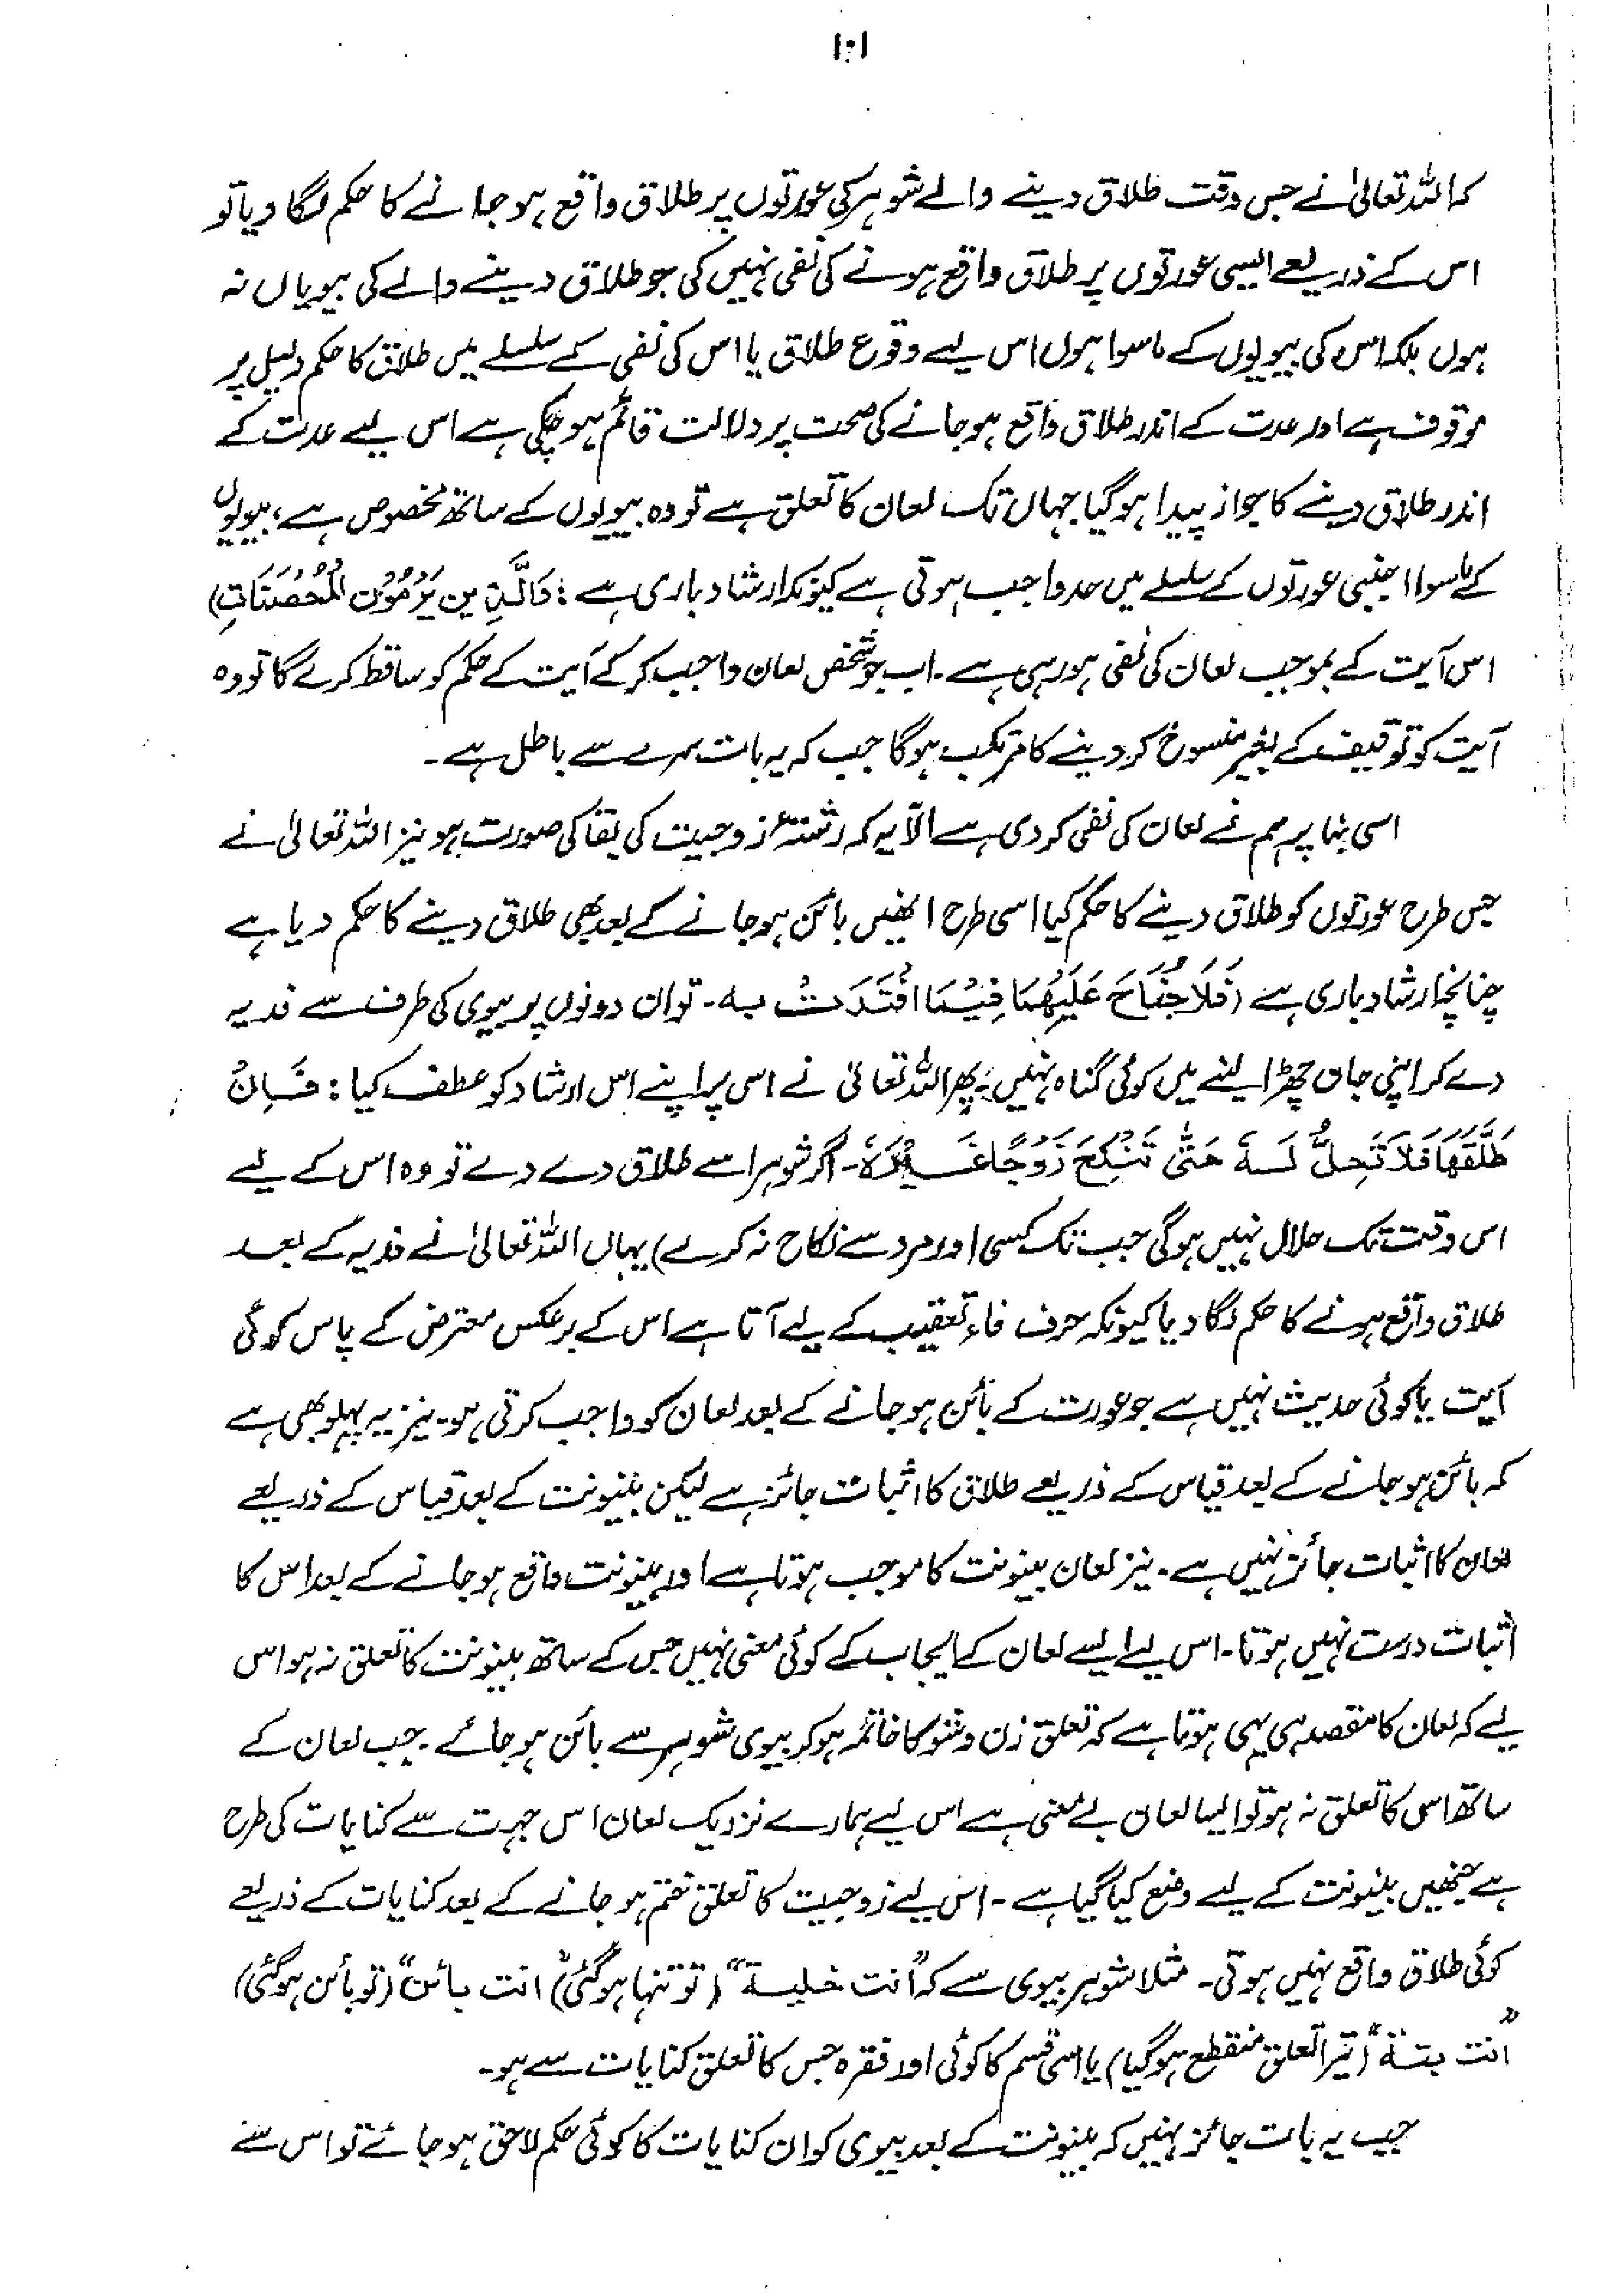 ۱۰۱
کہ اللہ تعالیٰ نے جس وقت طلاق دینے والے شوہر کی عورتوں پر طلاق واقع ہو جانے کا حکم لگا دیا تو
اس کے ذریعے ایسی عورتوں پر طلاق واقع ہونے کی نفی نہیں کی جو طلاق دینے والے کی بیویاں نہ
ہوں بلکہ اس کی بیویوں کے ماسوا ہوں اس لیے وقوع طلاق یا اس کی نفی کے سلسلے میں طلاق کا حکم دلیل پر
موقوف ہے اور عدت کے اندر طلاق واقع ہو جانے کی صحت پر دلالت قائم ہو چکی ہے اس لیے عدت کے
اندر طلاق دینے کا جواز پیدا ہو گیا جہاں تک لعان کا تعلق ہے تو وہ بیویوں کے ساتھ مخصوص ہے، بیویوں
کے ماسوا اجنبی عورتوں کے سلسلے میں حد واجب ہوتی ہے کیونکہ ارشاد باری ہے : وَالَّذِينَ يَرْمُوْنَ الْمُحْصَنَاتِ)
اس آیت کے بموجب لعان کی نفی ہو رہی ہے۔ اب جو شخص لعان واجب کر کے آیت کے حکم کو ساقط کرے گا تو وہ
آیت کو توقیف کے بغیر منسوخ کر دینے کا مرتکب ہوگا جب کہ یہ بات سرے سے باطل ہے۔
اسی بنا پر ہم نے لعان کی نفی کر دی ہے الّا یہ کہ رشتۂ زوجیت کی بقا کی صورت ہو نیز اللہ تعالیٰ نے
جس طرح عورتوں کو طلاق دینے کا حکم کیا اسی طرح انھیں بائن ہو جانے کے بعد بھی طلاق دینے کا حکم دیا ہے
چنانچہ ارشاد باری ہے (فَلَا جُنَاحَ عَلَيْهِمَا فِيْمَا افْتَدَتْ بِه۔ تو ان دونوں پر بیوی کی طرف سے فدیہ
دے کر اپنی جان چھڑا لینے میں کوئی گناہ نہیں) پھر اللہ تعالیٰ نے اس پر اپنے اس ارشاد کو عطف کیا : فَاِنْ
طَلَّقَهَا فَلَا تَحِلُّ لَهٗ حَتّٰى تَنْكِحَ زَوْجًا غَيْرَهٗ۔ اگر شوہر اسے طلاق دے دے تو وہ اس کے لیے
اس وقت تک حلال نہیں ہوگی جب تک کسی اور مرد سے نکاح نہ کرے) یہاں اللہ تعالیٰ نے فدیہ کے بعد
طلاق واقع ہونے کا حکم لگا دیا کیونکہ حرف فاء تعقیب کے لیے آتا ہے اس کے برعکس معترض کے پاس کوئی
آیت یا کوئی حدیث نہیں ہے جو عورت کے بائن ہو جانے کے بعد لعان کو واجب کرتی ہو۔ نیز یہ پہلو بھی ہے
کہ بائن ہو جانے کے بعد قیاس کے ذریعے طلاق کا اثبات جائز ہے لیکن بینونت کے بعد قیاس کے ذریعے
لعان کا اثبات جائز نہیں ہے۔ نیز لعان بینونت کا موجب ہوتا ہے اور بینونت واقع ہو جانے کے بعد اس کا
اثبات درست نہیں ہوتا۔ اس لیے ایسے لعان کے ایجاب کے کوئی معنی نہیں جس کے ساتھ بینونت کا تعلق نہ ہو اس
لیے کہ لعان کا مقصد ہی یہی ہوتا ہے کہ تعلق زن و شو کا خاتمہ ہو کر بیوی شوہر سے بائن ہو جائے۔ جب لعان کے
ساتھ اس کا تعلق نہ ہو تو ایسا لعان بے معنی ہے اس لیے ہمارے نزدیک لعان اس جہت سے کنایات کی طرح
ہے جنھیں بینونت کے لیے وضع کیا گیا ہے۔ اس لیے زوجیت کا تعلق ختم ہو جانے کے بعد کنایات کے ذریعے
کوئی طلاق واقع نہیں ہوتی۔ مثلا شوہر بیوی سے کہ "انت خلیۃ" (تو تنہا ہو گئی) انت بائن" (تو بائن ہو گئی)
"انت بتۃ" (تیرا تعلق منقطع ہو گیا) یا اسی قسم کا کوئی اور فقرہ جس کا تعلق کنایات سے ہو۔
جب یہ بات جائز نہیں کہ بینونت کے بعد بیوی کو ان کنایات کا کوئی حکم لاحق ہو جائے تو اس سے